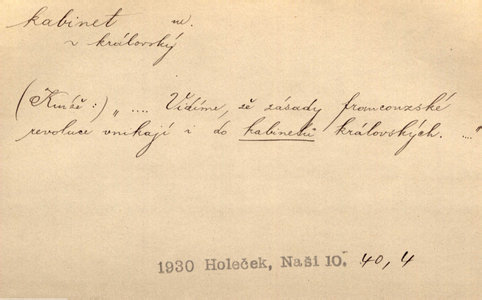 kabinet m.
~ královský
(Kníže:) „.... Vidíme, že zásady francouzské
revoluce vnikají i do kabinetů královských. ...."
1930 Holeček, Naši 10. 40, 4